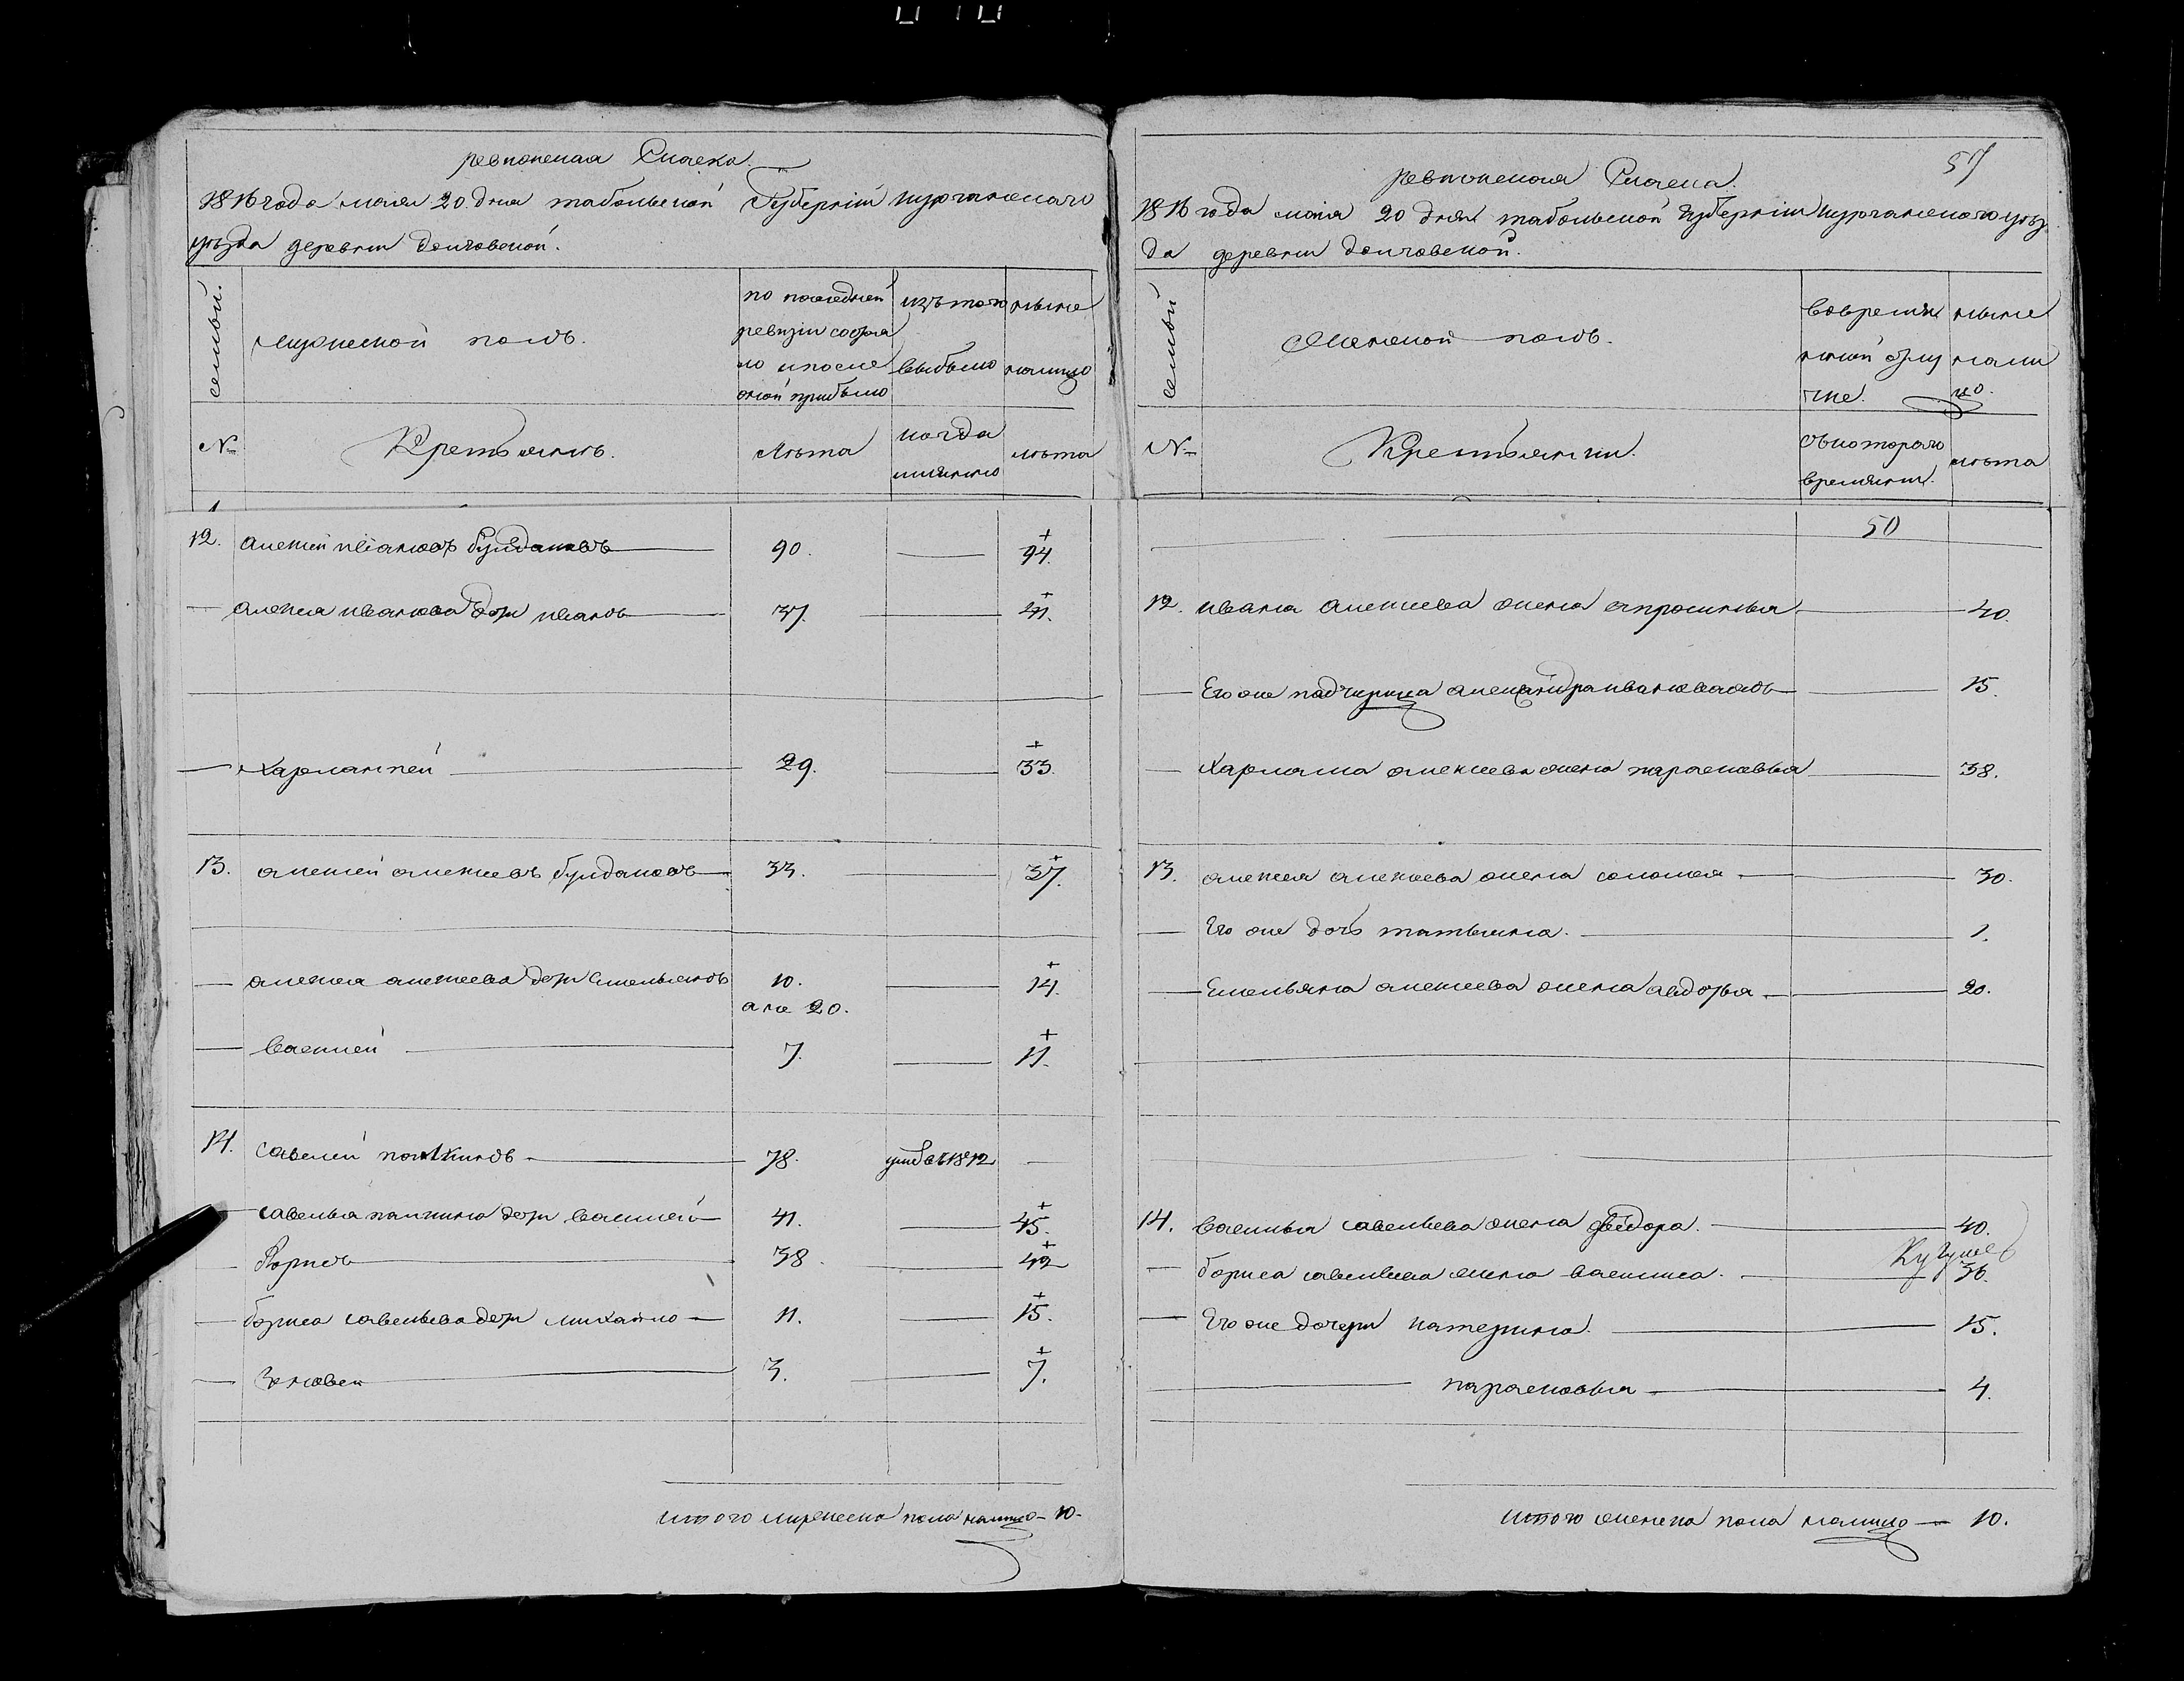 ревизская Сказка.
1816 года маия 20 дня табольской Губернiи курганскаго
уѣзда деревни Долговской.
семьи.
мужеской полъ.
по последней
ревизiи состоя
ло и после
оной прибыло
изъ того
выбыло
ныне
налицо
№
Крестьянѣ.
лѣта
когда
имянно
лѣта
12. алексей иванов
90.
94.
алексея иванова дети иванъ
37.
41.
Харлампей
29.
33.
13. алексей алексеевъ
33.
37.
алексея алексеева дети Емельянъ
10.
14.
а не 20.
Василей
7.
11.
14. Савелей
78.
умре въ 1812
Савелья дети василей
41.
45.
Борисъ
38.
42
бориса савельева дети михайло
11.
15.
Зиновей
3.
7.
итого мужеска пола налицо 10.
57
ревизская Сказка.
1816 года маiя 20 дня табольской губернiи курганского уѣз
да деревни долговской.
семьи
Женской полъ.
вовремян
ной отлу
чке.
ныне
нали
цо.
№
Крестьянки.
съ котораго
времяни.
лѣта
50
12. ивана алексеева жена
40.
Его же падчирица александра иванова дочь
15.
Харлама алексеева жена парасковья
38.
13. алексея алексеева жена соломея
30.
Его же дочь татьяна.
1.
Емельяна алексеева жена авдотья
20.
14. василья савельева жена федора.
40.
бориса савельева жена василиса.
36.
Его же дочери катерина.
15.
парасковья
4.
итого женска пола налицо 10.